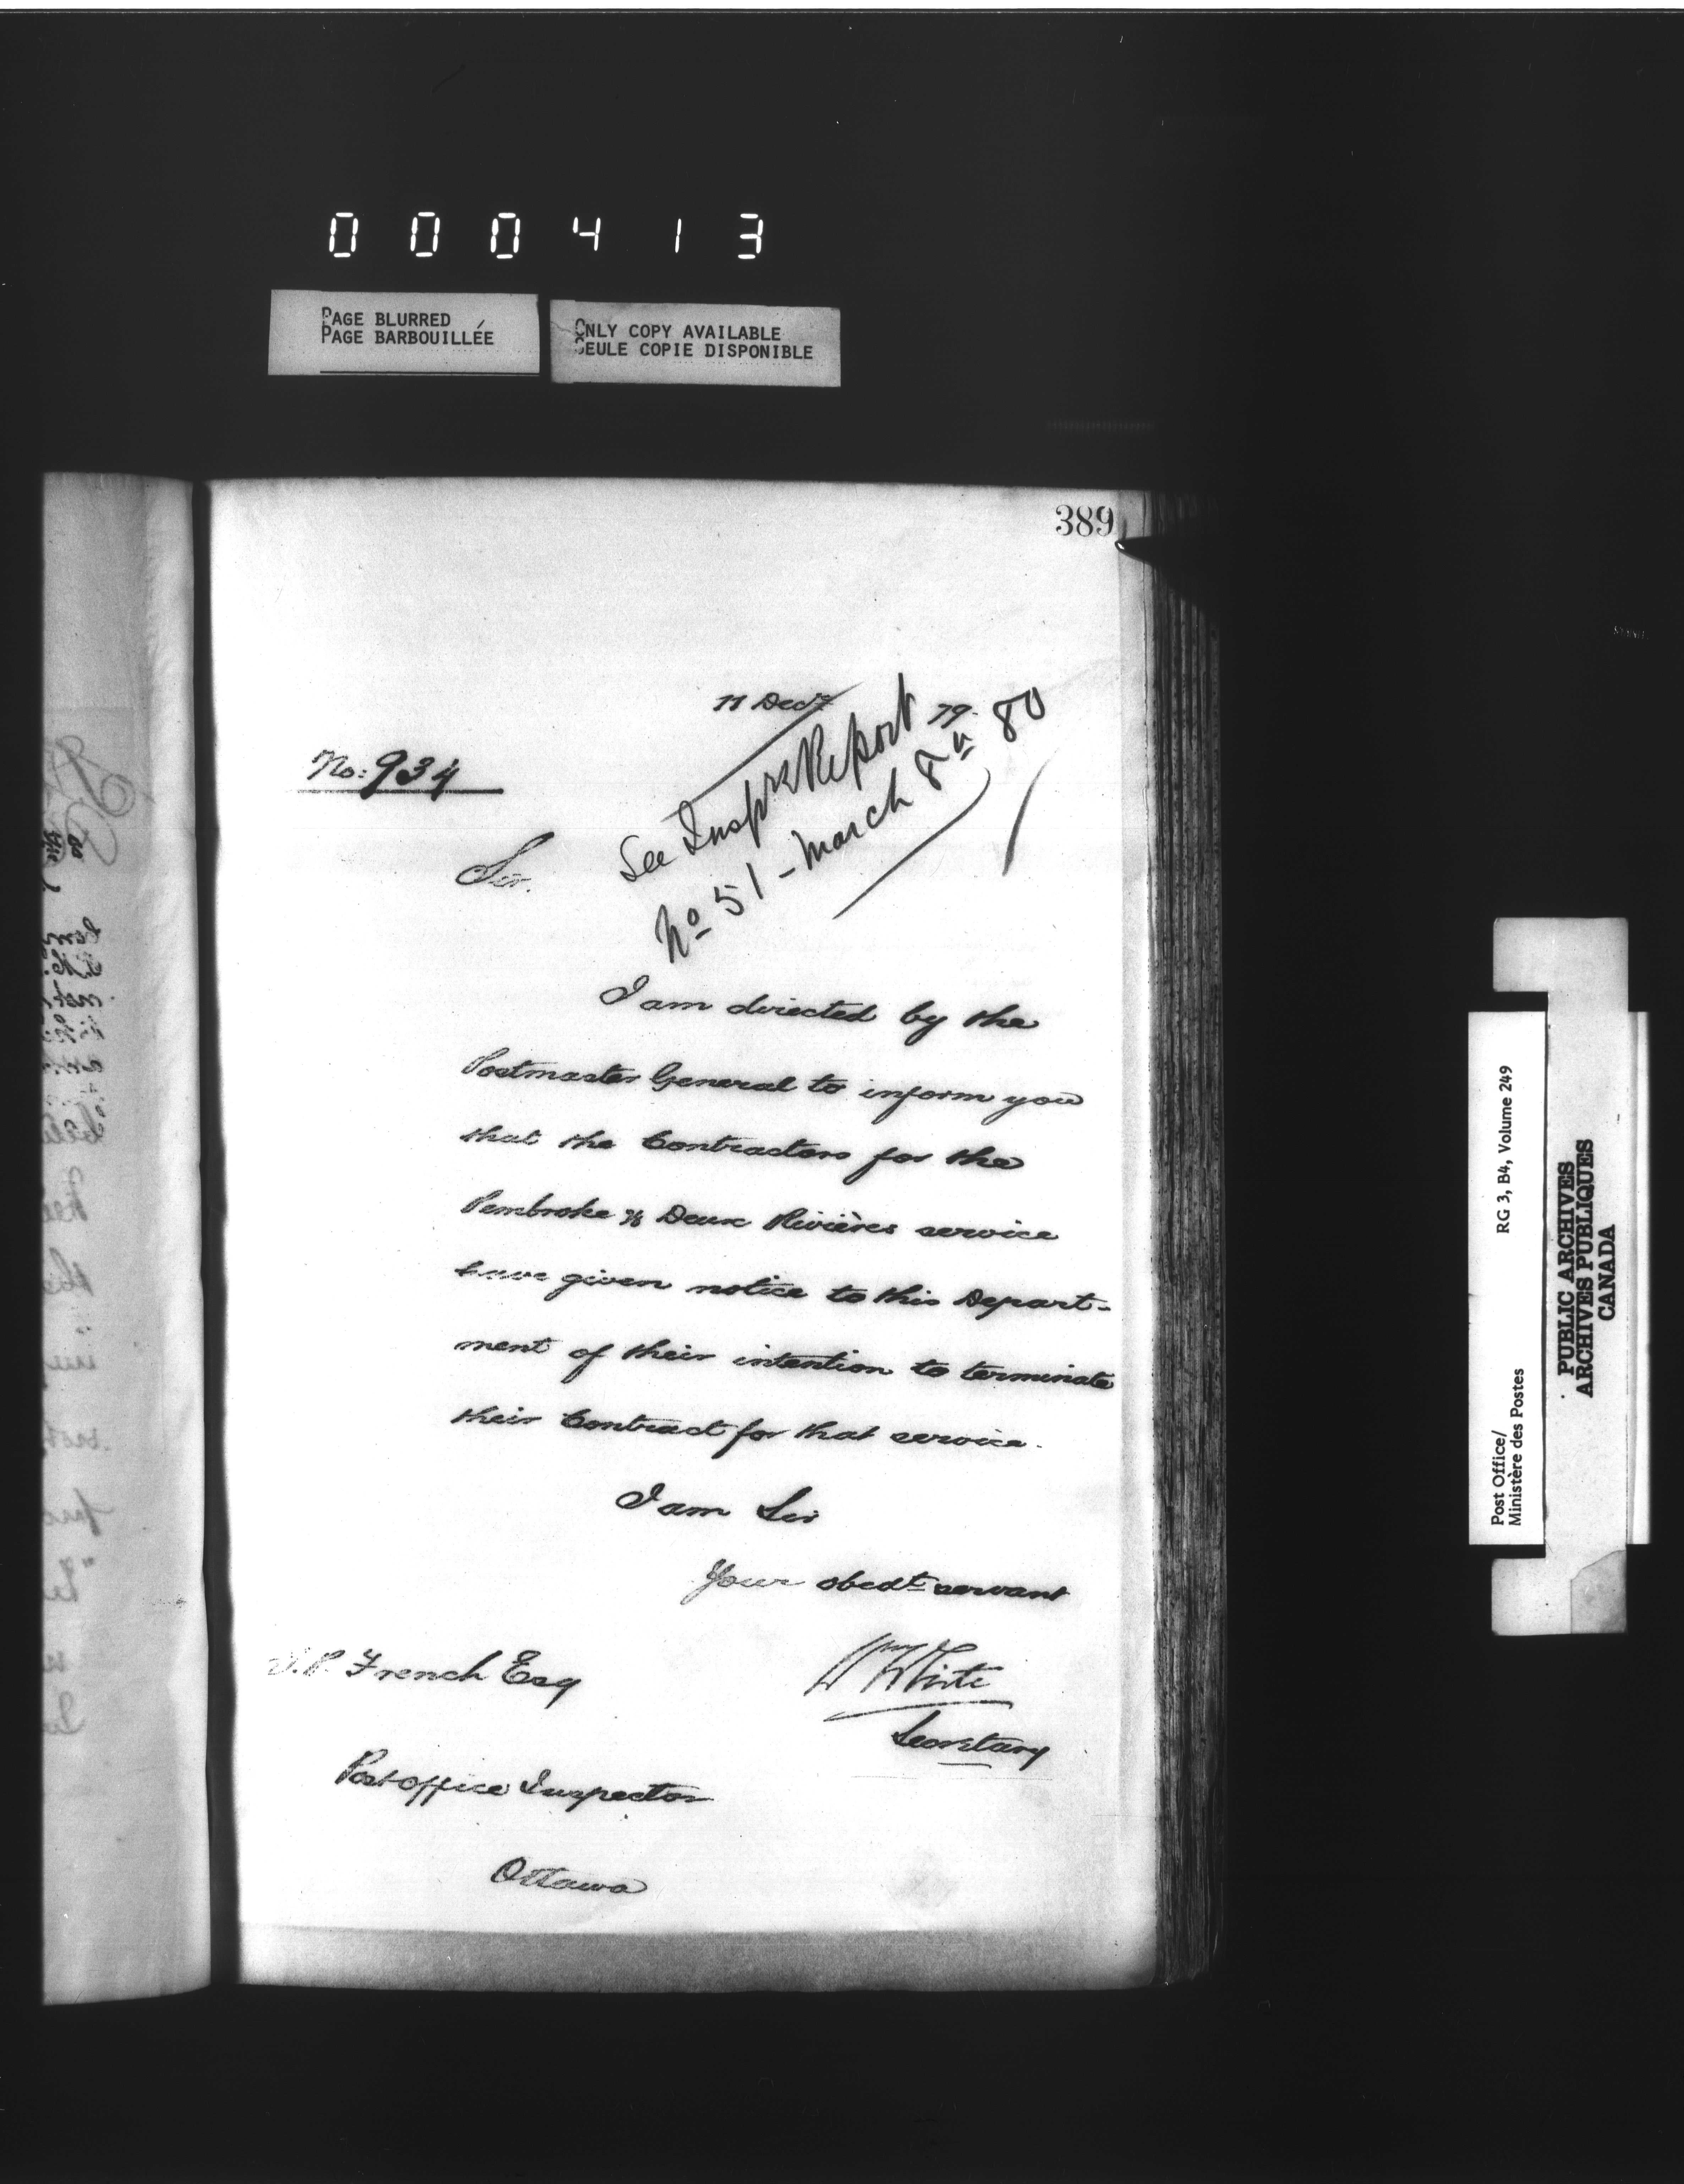 000413
PAGE BLURRED
PAGE BARBOUILLÉE
ONLY COPY AVAILABLE
SEULE COPIE DISPONIBLE
389
11 Decr 79.
No: 934
See Insprs Report
No 51 - March 8th 80
Sir.
I am directed by the
Postmaster General to inform you
that the Contractors for the
Pembroke & Deux Rivières service
have given notice to this Depart-
ment of their intention to terminate
their Contract for that service.
I am Sir
Your obedt servant
Wm White
Secretary
French Esq
Post office Inspector
Ottawa
Post Office/
Ministère des Postes
RG 3, B4, Volume 249
PUBLIC ARCHIVES
ARCHIVES PUBLIQUES
CANADA